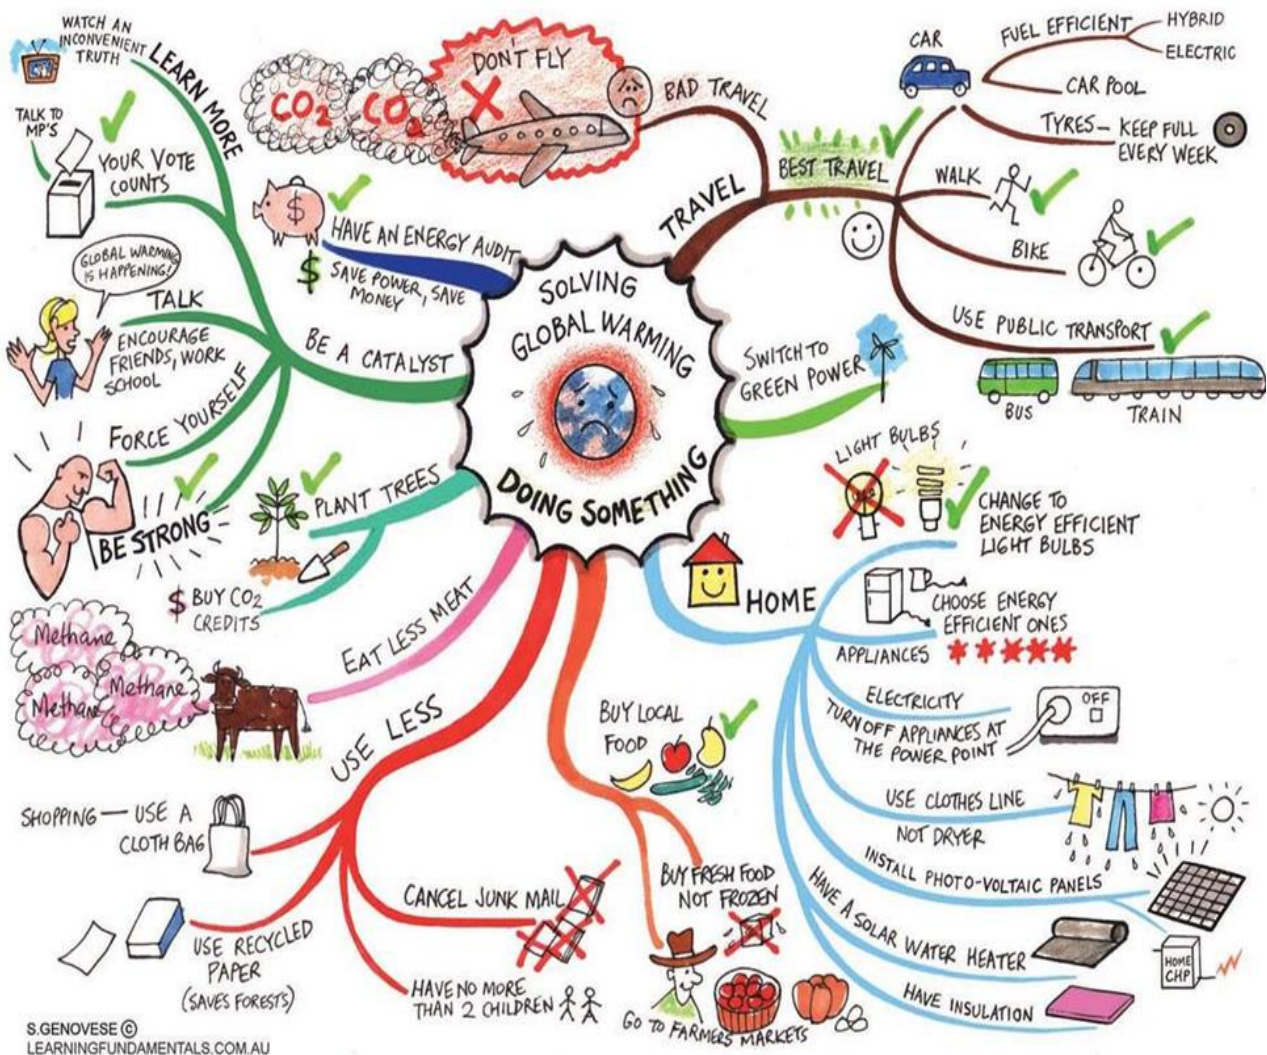 SOLVING
GLOBAL WARMING
DOING SOMETHING
TRAVEL
BAD TRAVEL
DON'T FLY
CO2
CO2
BEST TRAVEL
CAR
FUEL EFFICIENT
HYBRID
ELECTRIC
CAR POOL
TYRES – KEEP FULL
EVERY WEEK
WALK
BIKE
USE PUBLIC TRANSPORT
BUS
TRAIN
SWITCH TO
GREEN POWER
HOME
LIGHT BULBS
CHANGE TO
ENERGY EFFICIENT
LIGHT BULBS
CHOOSE ENERGY
EFFICIENT ONES
APPLIANCES
ELECTRICITY
TURN OFF APPLIANCES AT
THE POWER POINT
OFF
USE CLOTHES LINE
NOT DRYER
INSTALL PHOTO-VOLTAIC PANELS
HOME
CHP
HAVE A SOLAR WATER HEATER
HAVE INSULATION
BUY LOCAL
FOOD
BUY FRESH FOOD
NOT FROZEN
GO TO FARMERS MARKETS
USE LESS
SHOPPING — USE A
CLOTH BAG
USE RECYCLED
PAPER
(SAVES FORESTS)
CANCEL JUNK MAIL
HAVE NO MORE
THAN 2 CHILDREN
EAT LESS MEAT
Methane
Methane
Methane
PLANT TREES
$ BUY CO2
CREDITS
BE A CATALYST
LEARN MORE
WATCH AN
INCONVENIENT
TRUTH
TALK TO
MP'S
YOUR VOTE
COUNTS
GLOBAL WARMING
IS HAPPENING!
TALK
ENCOURAGE
FRIENDS, WORK
SCHOOL
FORCE YOURSELF
BE STRONG
$
HAVE AN ENERGY AUDIT
$ SAVE POWER, SAVE
MONEY
S.GENOVESE ©
LEARNINGFUNDAMENTALS.COM.AU